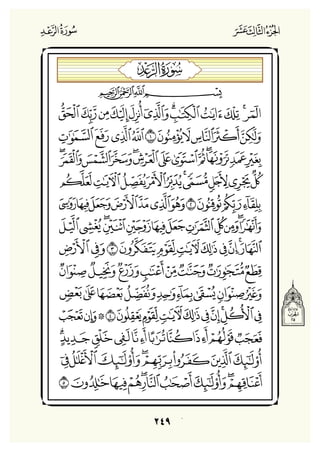 سُورَةُ الرَّعْدِ
الجُزْءُ الثَّالِثَ عَشَرَ
سُورَةُ الرَّعْدِ
بِسْمِ اللَّهِ الرَّحْمَٰنِ الرَّحِيمِ
الٓمٓر ۚ تِلْكَ ءَايَٰتُ ٱلْكِتَٰبِ ۗ وَٱلَّذِىٓ أُنزِلَ إِلَيْكَ مِن رَّبِّكَ ٱلْحَقُّ
وَلَٰكِنَّ أَكْثَرَ ٱلنَّاسِ لَا يُؤْمِنُونَ ١ ٱللَّهُ ٱلَّذِى رَفَعَ ٱلسَّمَٰوَٰتِ
بِغَيْرِ عَمَدٍ تَرَوْنَهَا ۖ ثُمَّ ٱسْتَوَىٰ عَلَى ٱلْعَرْشِ ۖ وَسَخَّرَ ٱلشَّمْسَ وَٱلْقَمَرَ ۖ
كُلٌّ يَجْرِى لِأَجَلٍ مُّسَمًّى ۚ يُدَبِّرُ ٱلْأَمْرَ يُفَصِّلُ ٱلْءَايَٰتِ لَعَلَّكُم
بِلِقَآءِ رَبِّكُمْ تُوقِنُونَ ٢ وَهُوَ ٱلَّذِى مَدَّ ٱلْأَرْضَ وَجَعَلَ فِيهَا رَوَٰسِىَ
وَأَنْهَٰرًا ۖ وَمِن كُلِّ ٱلثَّمَرَٰتِ جَعَلَ فِيهَا زَوْجَيْنِ ٱثْنَيْنِ ۖ يُغْشِى ٱلَّيْلَ
ٱلنَّهَارَ ۚ إِنَّ فِى ذَٰلِكَ لَءَايَٰتٍ لِّقَوْمٍ يَتَفَكَّرُونَ ٣ وَفِى ٱلْأَرْضِ
قِطَعٌ مُّتَجَٰوِرَٰتٌ وَجَنَّٰتٌ مِّنْ أَعْنَٰبٍ وَزَرْعٌ وَنَخِيلٌ صِنْوَانٌ
وَغَيْرُ صِنْوَانٍ يُسْقَىٰ بِمَآءٍ وَٰحِدٍ وَنُفَضِّلُ بَعْضَهَا عَلَىٰ بَعْضٍ
فِى ٱلْأُكُلِ ۚ إِنَّ فِى ذَٰلِكَ لَءَايَٰتٍ لِّقَوْمٍ يَعْقِلُونَ ٤ ۞ وَإِن تَعْجَبْ
فَعَجَبٌ قَوْلُهُمْ أَءِذَا كُنَّا تُرَٰبًا أَءِنَّا لَفِى خَلْقٍ جَدِيدٍ ۗ
أُو۟لَٰٓئِكَ ٱلَّذِينَ كَفَرُوا۟ بِرَبِّهِمْ ۖ وَأُو۟لَٰٓئِكَ ٱلْأَغْلَٰلُ فِىٓ
أَعْنَاقِهِمْ ۖ وَأُو۟لَٰٓئِكَ أَصْحَٰبُ ٱلنَّارِ ۖ هُمْ فِيهَا خَٰلِدُونَ ٥
٢٤٩